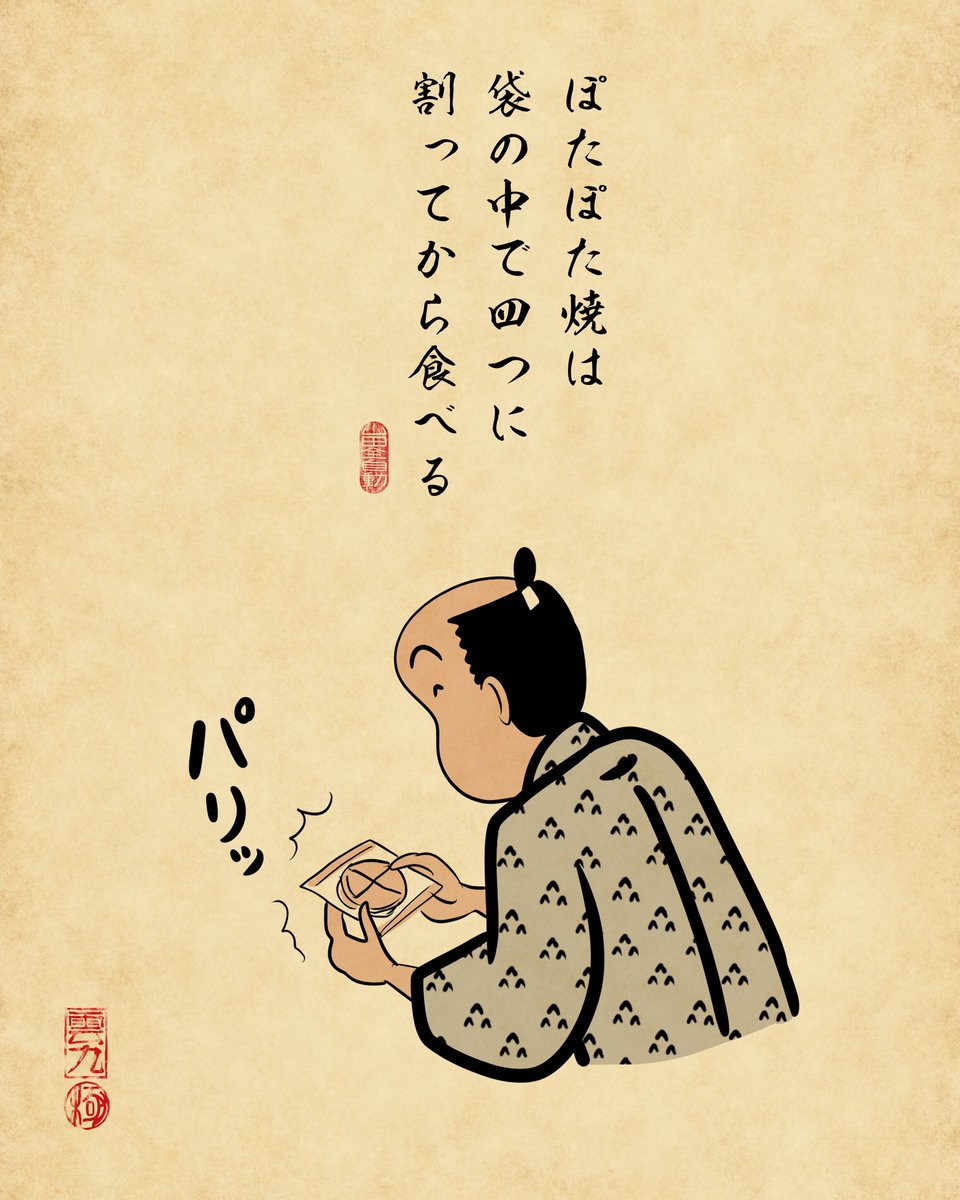 ぽたぽた焼は
袋の中で四つに
割ってから食べる
パリッ